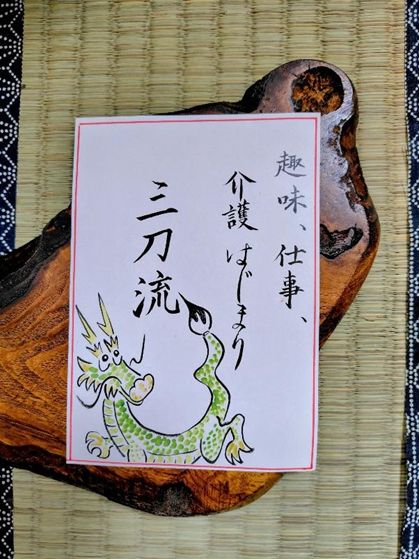 趣味、仕事、
介護はじまり
三刀流